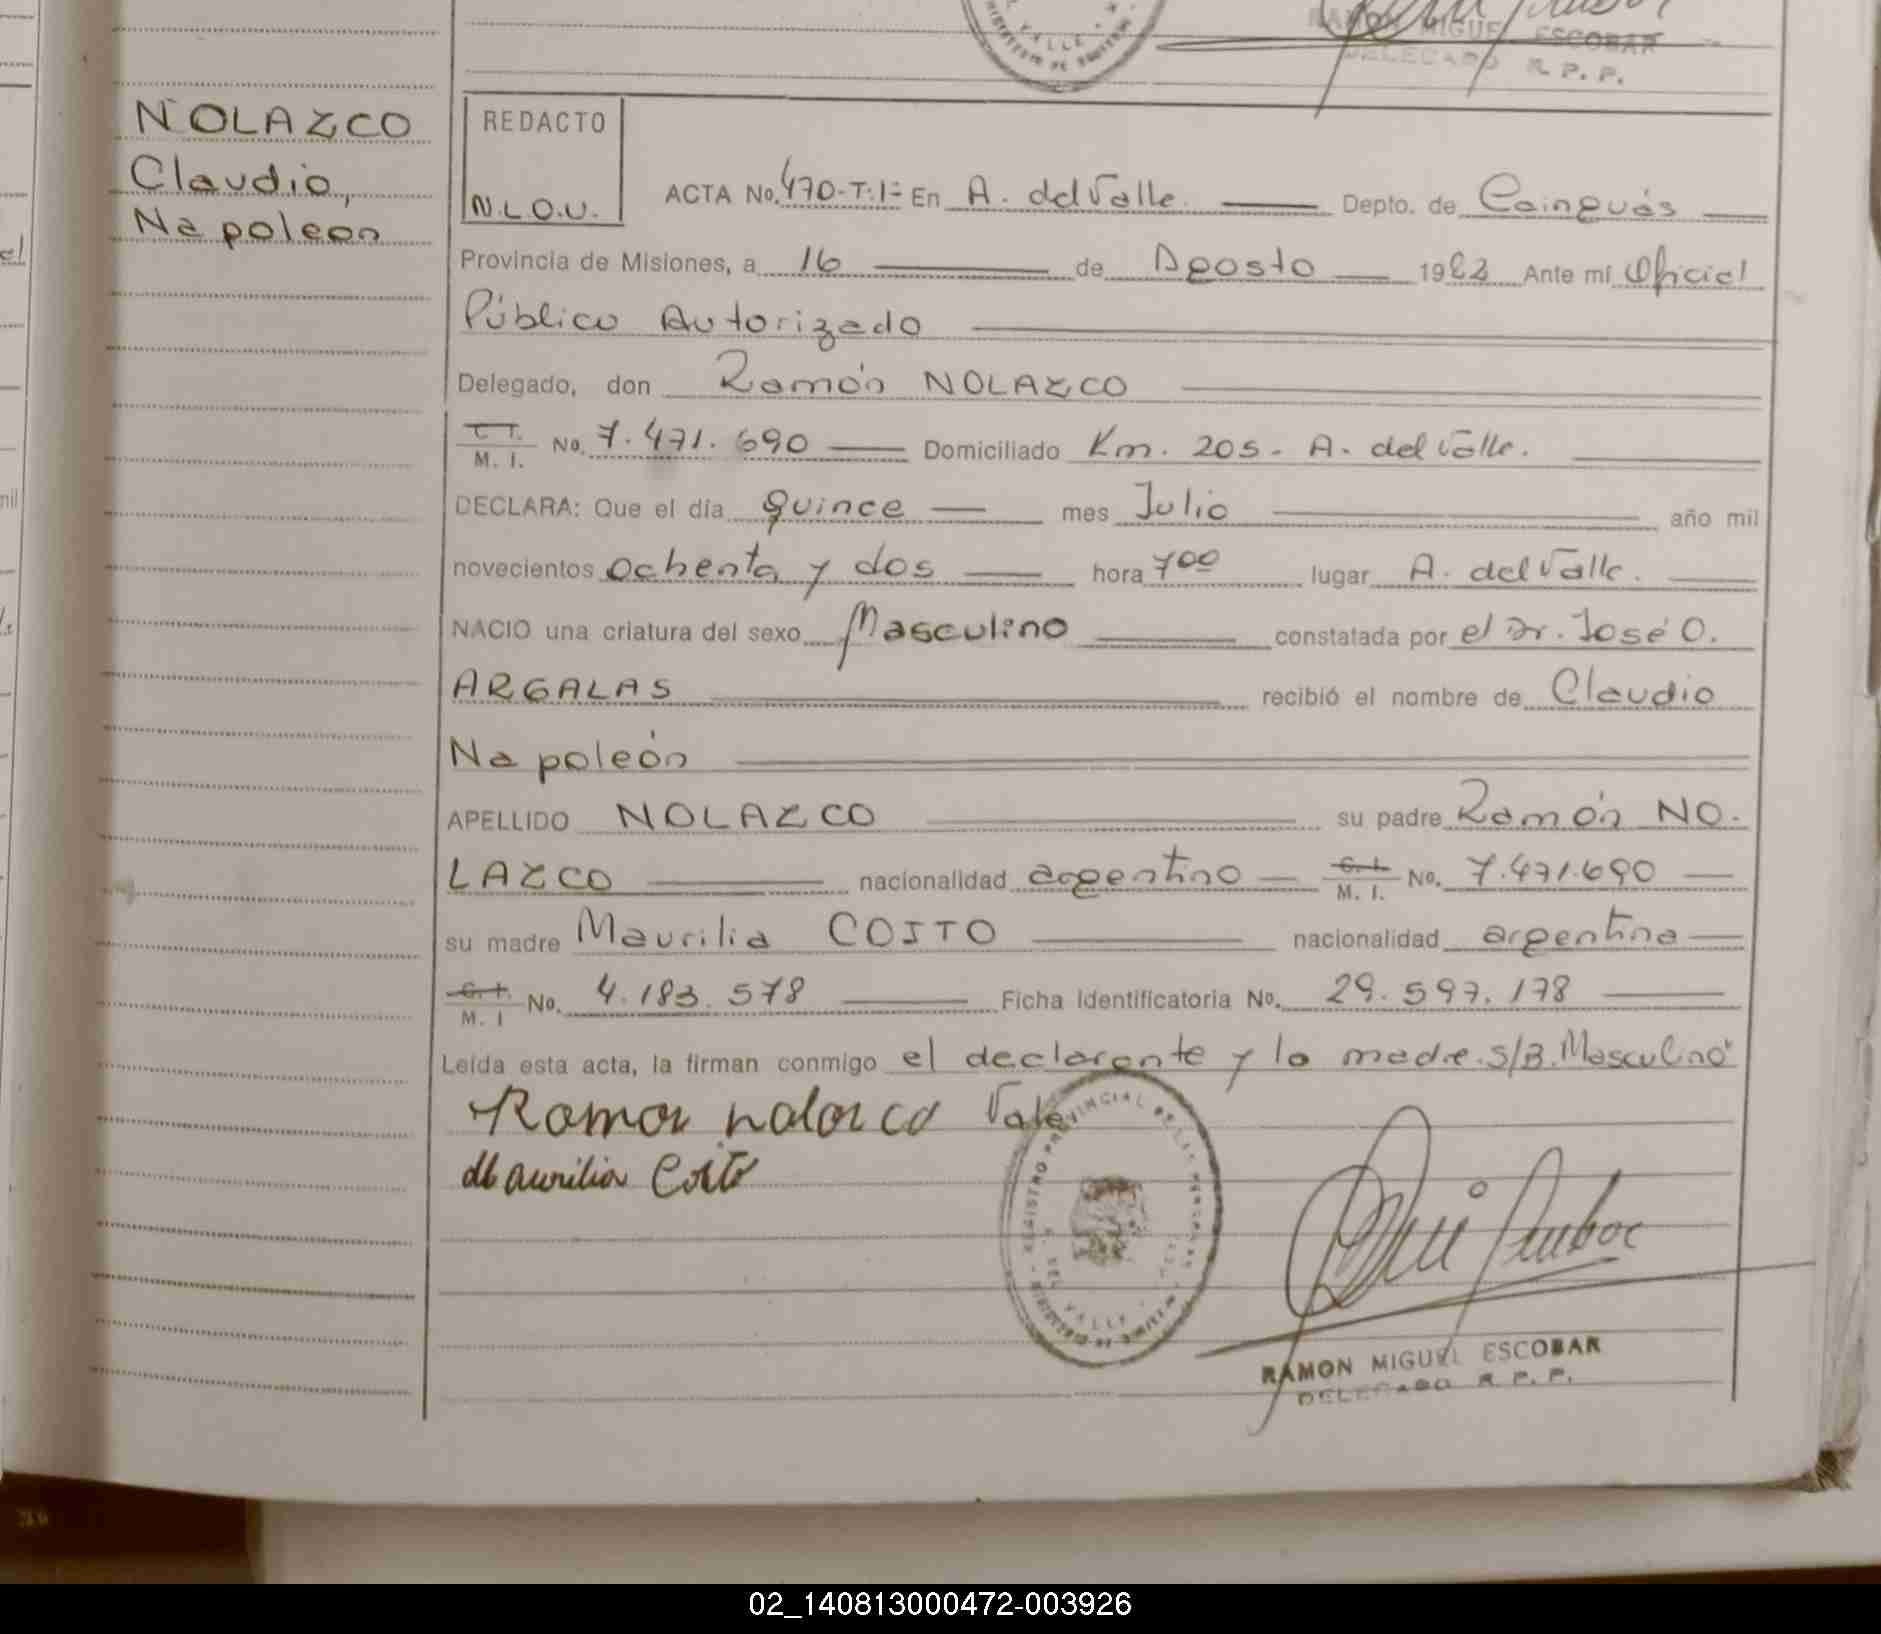 RAMON MIGUEL ESCOBAR
DELEGADO R. P. P.
NOLAZCO
Claudio,
Napoleon
REDACTO
N.L.O.U.
ACTA No. 470-T:I= En A. del Valle. Depto. de Cainguás
Provincia de Misiones, a 16 de Agosto 1982 Ante mí Oficial
Público Autorizado
Delegado, don Ramón NOLAZCO
C. I. M. I. No. 7.471.690 Domiciliado Km. 205- A. del Valle.
DECLARA: Que el día quince mes Julio año mil
novecientos ochenta y dos hora 7 00 lugar A. del Valle.
NACIO una criatura del sexo Masculino constatada por el Dr. José O.
ARGALAS recibió el nombre de Claudio
Napoleón
APELLIDO NOLAZCO su padre Ramón NO-
LAZCO nacionalidad argentino C. I. M. I. No. 7.471.690
su madre Maurilia COITO nacionalidad argentina
C. I. M. I No. 4.183.578 Ficha Identificatoria No. 29.597.178
Leída esta acta, la firman conmigo el declarante y la madre. S/B. Masculino"
Vale
Ramon nolasco
Maurilia Coito
REGISTRO PROVINCIAL DE LAS PERSONAS
DEL VALLE
RAMON MIGUEL ESCOBAR
DELEGADO R. P. P.
02_140813000472-003926